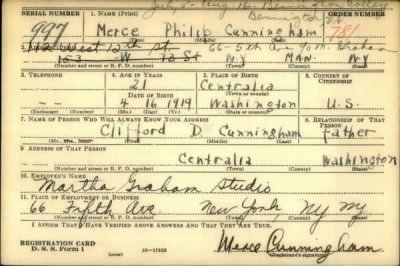 July 5 - Aug 16: Bennington College
Bennington, Vt
SERIAL NUMBER
1. NAME (Print)
ORDER NUMBER
997
Merce Philip Cunningham
781
(First) (Middle) (Last)
2. ADDRESS (Print)
12 West 12th St. 66-5th Ave c/o M. Graham
153 W 13 St N.Y. MAN. N.Y.
(Number and street or R. F. D. number) (Town) (County) (State)
3. TELEPHONE
4. AGE IN YEARS
5. PLACE OF BIRTH
6. COUNTRY OF CITIZENSHIP
21
Centralia
DATE OF BIRTH
(Town or county)
-- 4 16 1919 Washington U.S.
(Exchange) (Number) (Mo.) (Day) (Yr.) (State or country)
7. NAME OF PERSON WHO WILL ALWAYS KNOW YOUR ADDRESS
8. RELATIONSHIP OF THAT PERSON
Clifford D. Cunningham father
(Mr., Mrs., Miss) (First) (Middle) (Last)
9. ADDRESS OF THAT PERSON
Centralia Washington
(Number and street or R. F. D. number) (Town) (County) (State)
10. EMPLOYER'S NAME
Martha Graham Studio
11. PLACE OF EMPLOYMENT OR BUSINESS
66 Fifth Ave New York, NY NY
(Number and street or R. F. D. number) (Town) (County) (State)
I AFFIRM THAT I HAVE VERIFIED ABOVE ANSWERS AND THAT THEY ARE TRUE.
REGISTRATION CARD
D. S. S. Form 1
(over)
Merce Cunningham
(Registrant's signature)